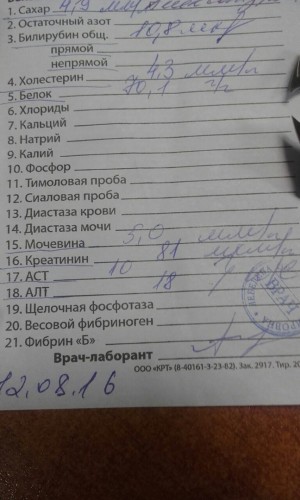 1. Сахар 4,9
2. Остаточный азот
3. Билирубин общ. 10,8
прямой
непрямой
4. Холестерин 4,3 ммл/л
5. Белок 70,1 г/л
6. Хлориды
7. Кальций
8. Натрий
9. Калий
10. Фосфор
11. Тимоловая проба
12. Сиаловая проба
13. Диастаза крови
14. Диастаза мочи
15. Мочевина 5,0
16. Креатинин 81
17. АСТ 10
18. АЛТ 18
19. Щелочная фосфотаза
20. Весовой фибриноген
21. Фибрин «Б»
Врач-лаборант
ООО «КРТ» (8-40161-3-23-82). Зак. 2917. Тир. 20
12.08.16
ВРАЧ